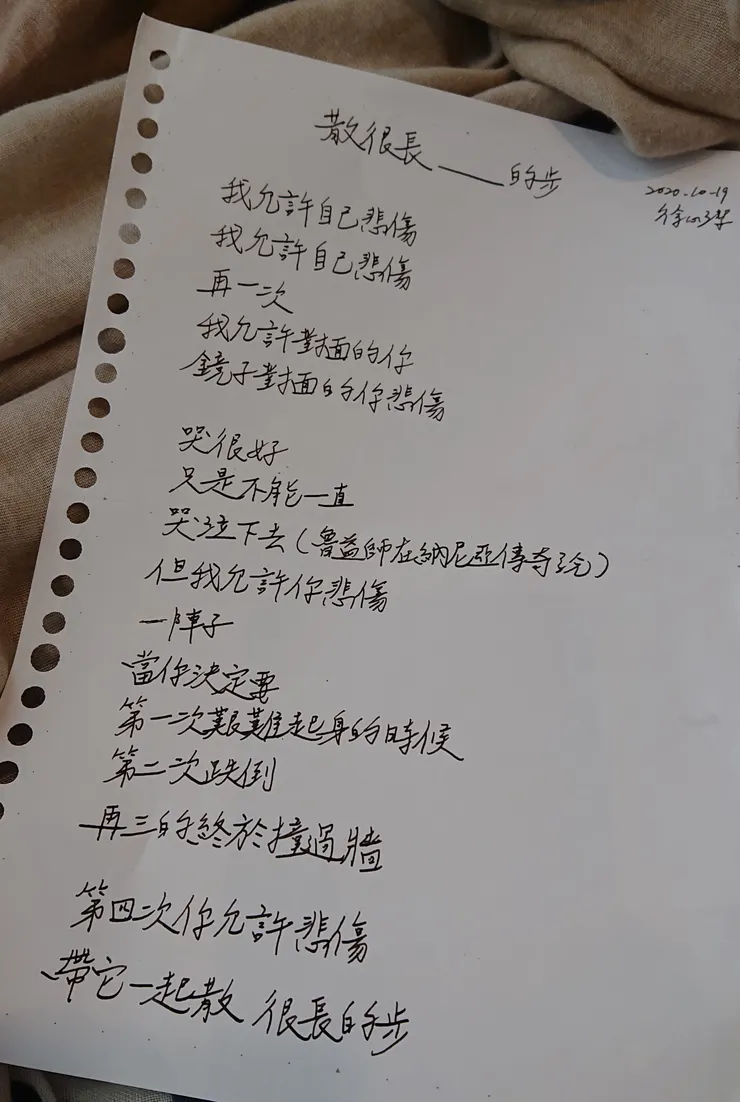 散很長——的步
2020.10.19
我允許自己悲傷
我允許自己悲傷
再一次
我允許對面的你
鏡子對面的你悲傷
哭很好
只是不能一直
哭泣下去(魯益師在納尼亞傳奇說)
但我允許你悲傷
一陣子
當你決定要
第一次艱難起身的時候
第二次跌倒
再三的終於撞過牆
第四次你允許悲傷
帶它一起散 很長的步